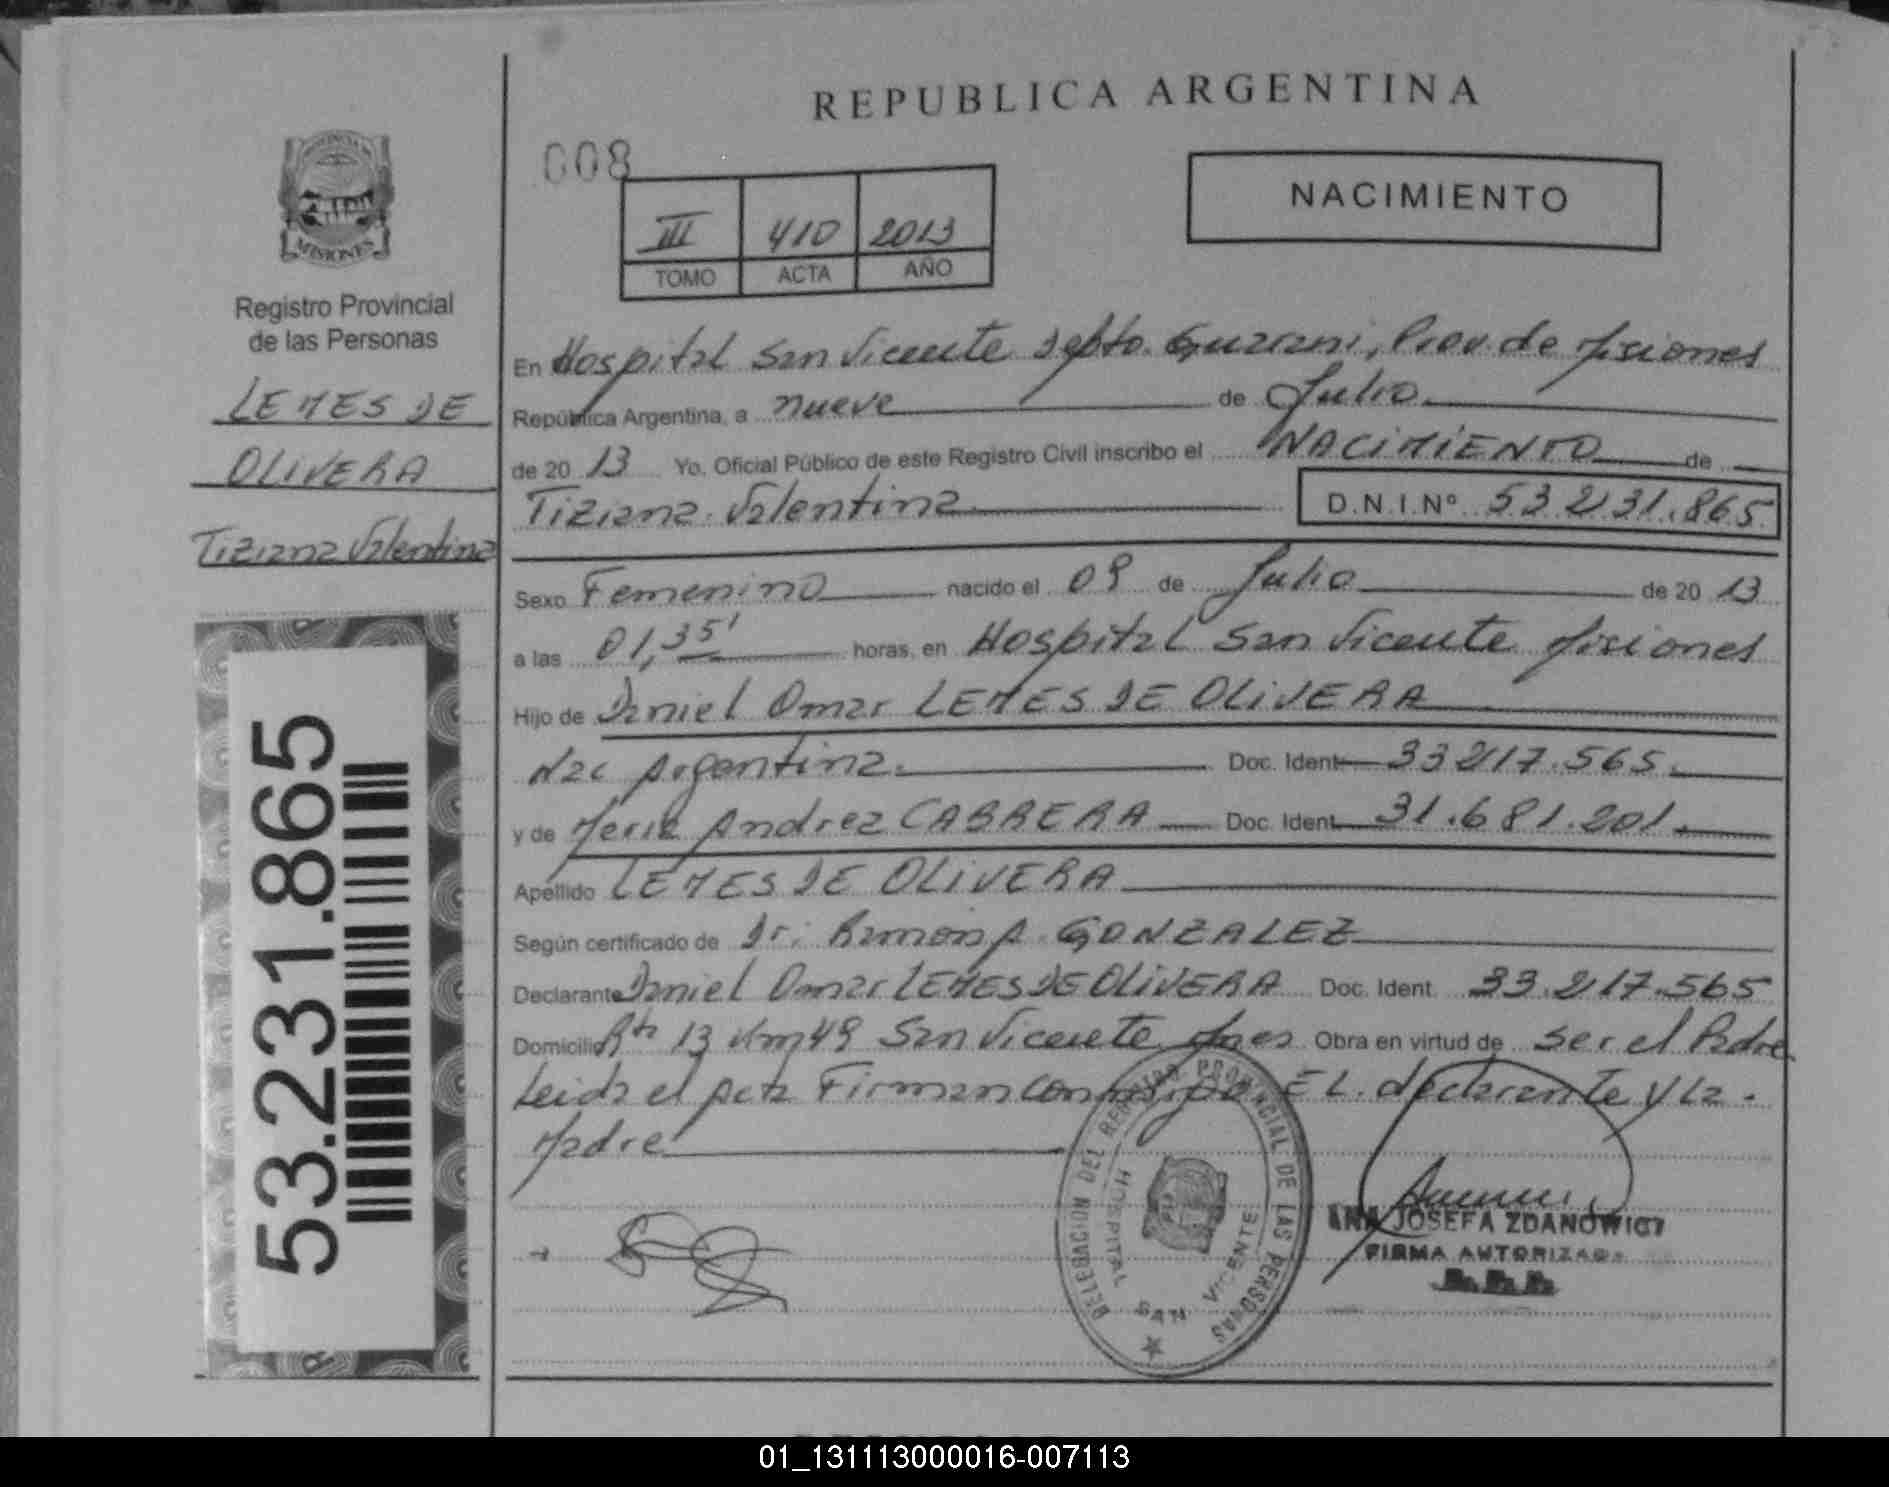 REPUBLICA ARGENTINA
008
NACIMIENTO
III 410 2013
TOMO ACTA AÑO
PROVINCIA DE
MISIONES
Registro Provincial
de las Personas
LEMES DE
OLIVERA
Tiziana Valentina
53.231.865
En Hospital San Vicente Depto. Guarani, Prov. de Misiones
República Argentina, a nueve de Julio
de 20 13 Yo, Oficial Público de este Registro Civil inscribo el NACIMIENTO de
Tiziana Valentina D.N.I.Nº 53 231.865
Sexo Femenino nacido el 09 de Julio de 20 13
a las 01,35' horas, en Hospital San Vicente Misiones
Hijo de Daniel Omar LEMES DE OLIVERA
Nac Argentina. Doc. Ident 33 217.565.
y de Maria Andrea CABRERA Doc. Ident. 31.681.201.
Apellido LEMES DE OLIVERA
Según certificado de Dr. Ramon A. GONZALEZ
Declarante Daniel Omar LEMES DE OLIVERA Doc. Ident. 33.217.565
Domicilio Rta 13 Km 49 San Vicente Mnes Obra en virtud de ser el Padre
Leida el Acta Firman Conmigo EL declarante y La
Madre
DELEGACION DEL REGISTRO PROVINCIAL DE LAS PERSONAS
HOSPITAL SAN VICENTE
ANA JOSEFA ZDANOWICZ
FIRMA AUTORIZADA
01_131113000016-007113